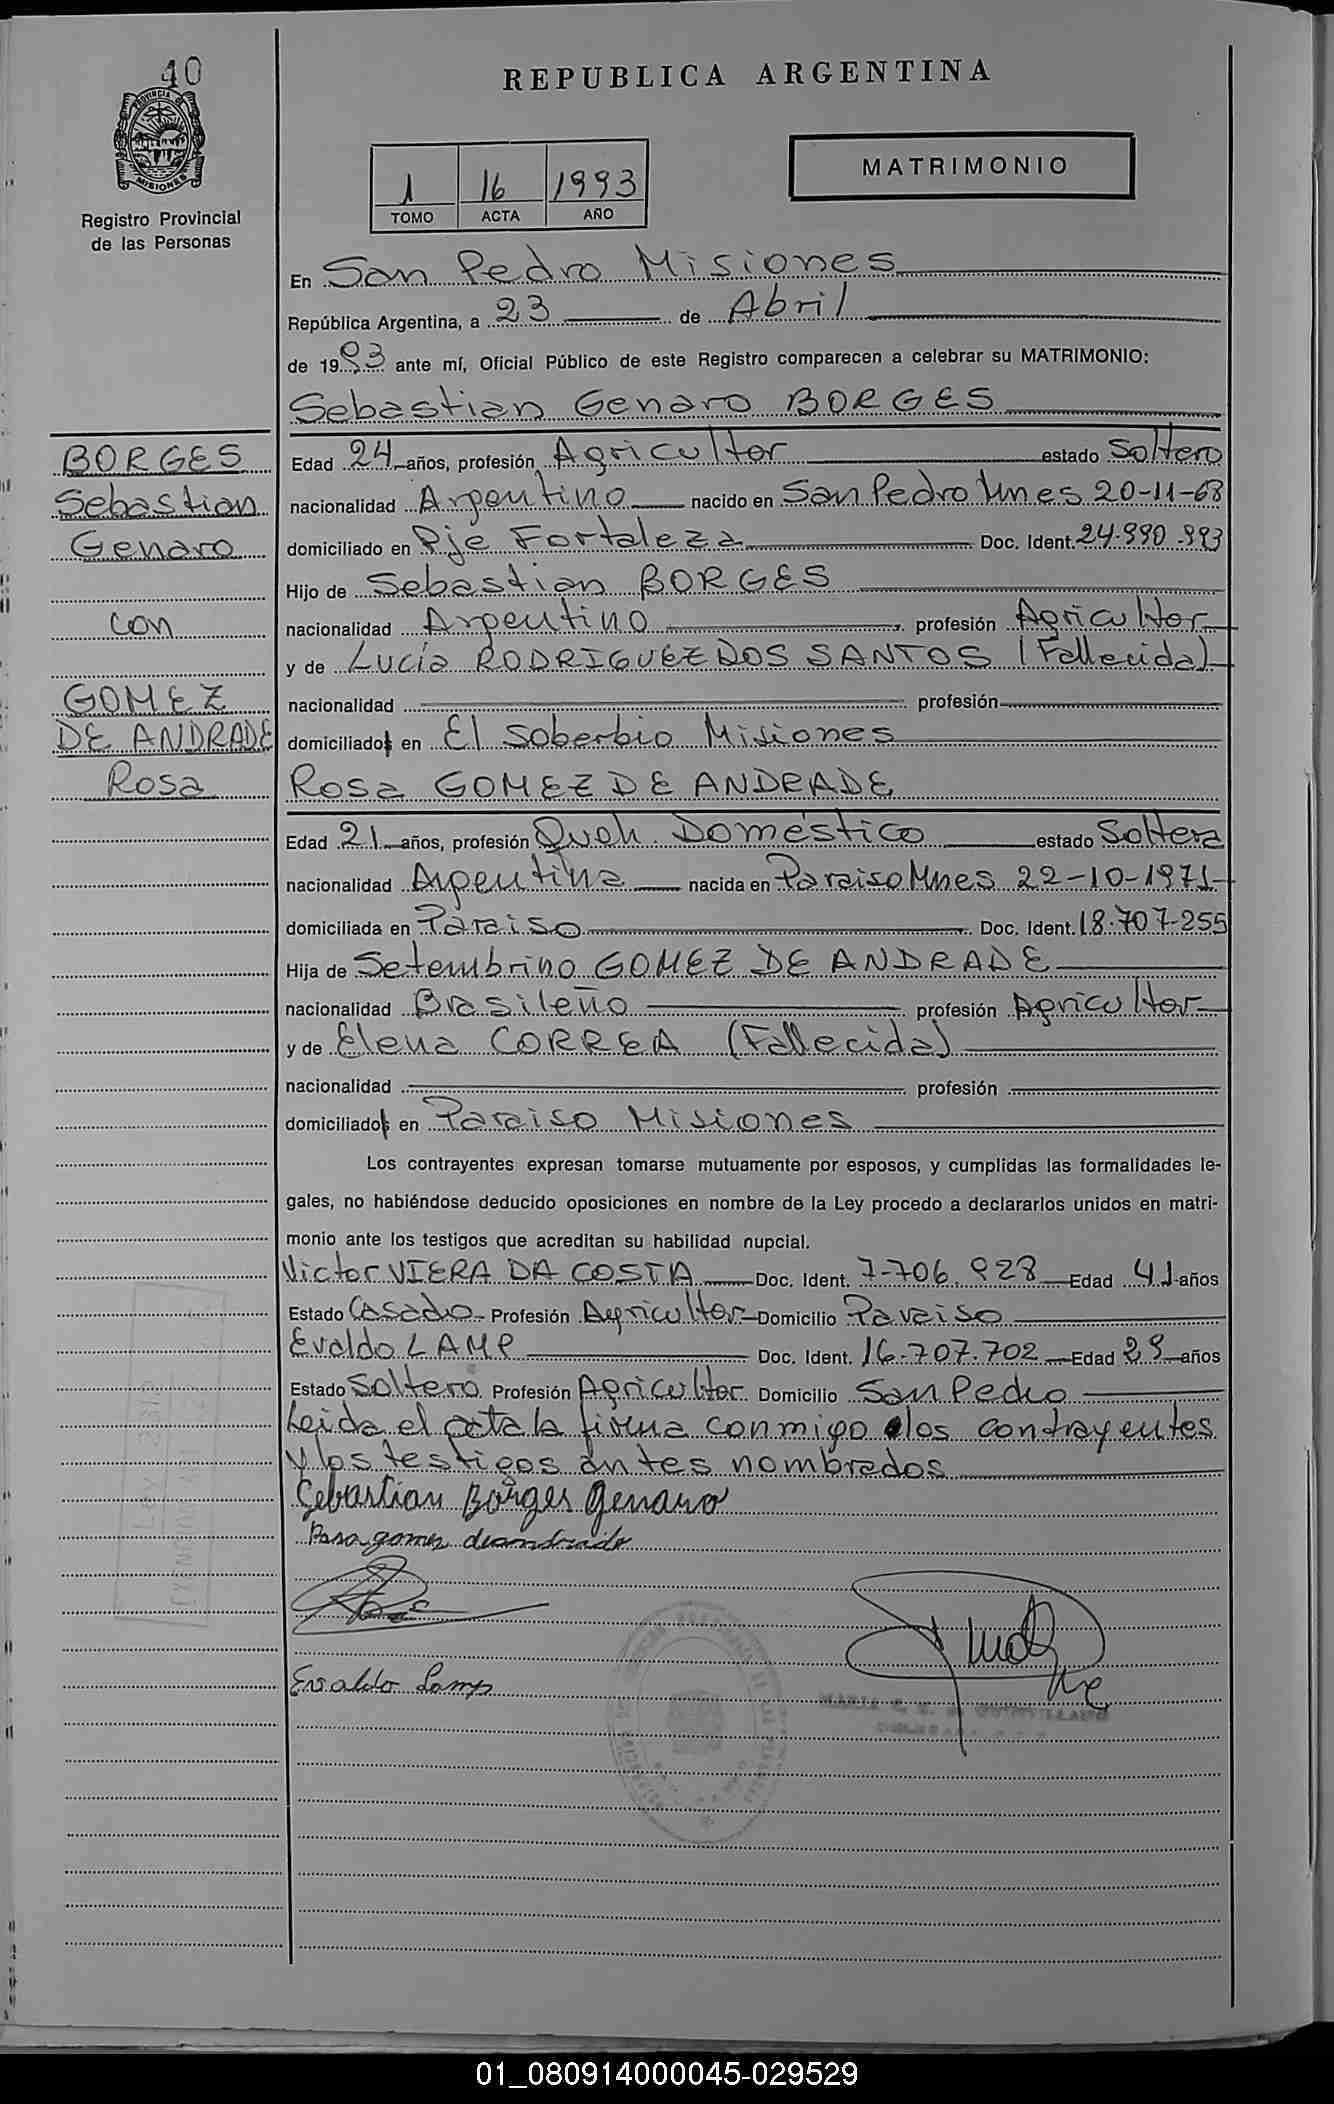 40
PROVINCIA DE
MISIONES
Registro Provincial
de las Personas
REPUBLICA ARGENTINA
1 16 1993
TOMO ACTA AÑO
MATRIMONIO
En San Pedro Misiones
República Argentina, a 23 de Abril
de 1993 ante mí, Oficial Público de este Registro comparecen a celebrar su MATRIMONIO:
Sebastian Genaro BORGES
BORGES
Sebastian
Genaro
con
GOMEZ
DE ANDRADE
Rosa
Edad 24 años, profesión Agricultor estado Soltero
nacionalidad Argentino nacido en San Pedro Mnes 20-11-68
domiciliado en Pje Fortaleza Doc. Ident. 24.990.993
Hijo de Sebastian BORGES
nacionalidad Argentino profesión Agricultor
y de Lucía RODRIGUEZ DOS SANTOS (Fallecida)
nacionalidad profesión
domiciliados en El Soberbio Misiones
Rosa GOMEZ DE ANDRADE
Edad 21 años, profesión Queh. Doméstico estado Soltera
nacionalidad Argentina nacida en Paraiso Mnes 22-10-1971
domiciliada en Paraiso Doc. Ident. 18.707.255
Hija de Setembrino GOMEZ DE ANDRADE
nacionalidad Brasileño profesión Agricultor
y de Elena CORREA (Fallecida)
nacionalidad profesión
domiciliados en Paraiso Misiones
Los contrayentes expresan tomarse mutuamente por esposos, y cumplidas las formalidades le-
gales, no habiéndose deducido oposiciones en nombre de la Ley procedo a declararlos unidos en matri-
monio ante los testigos que acreditan su habilidad nupcial.
Victor VIERA DA COSTA Doc. Ident. 7.706.928 Edad 41 años
Estado Casado Profesión Agricultor Domicilio Paraiso
Evaldo LAMP Doc. Ident. 16.707.702 Edad 29 años
Estado Soltero Profesión Agricultor Domicilio San Pedro
Leida el acta la firma conmigo los contrayentes
y los testigos antes nombrados
Sebastian Borges Genaro
Rosa gomez deandrade
Evaldo Lamp
01_080914000045-029529